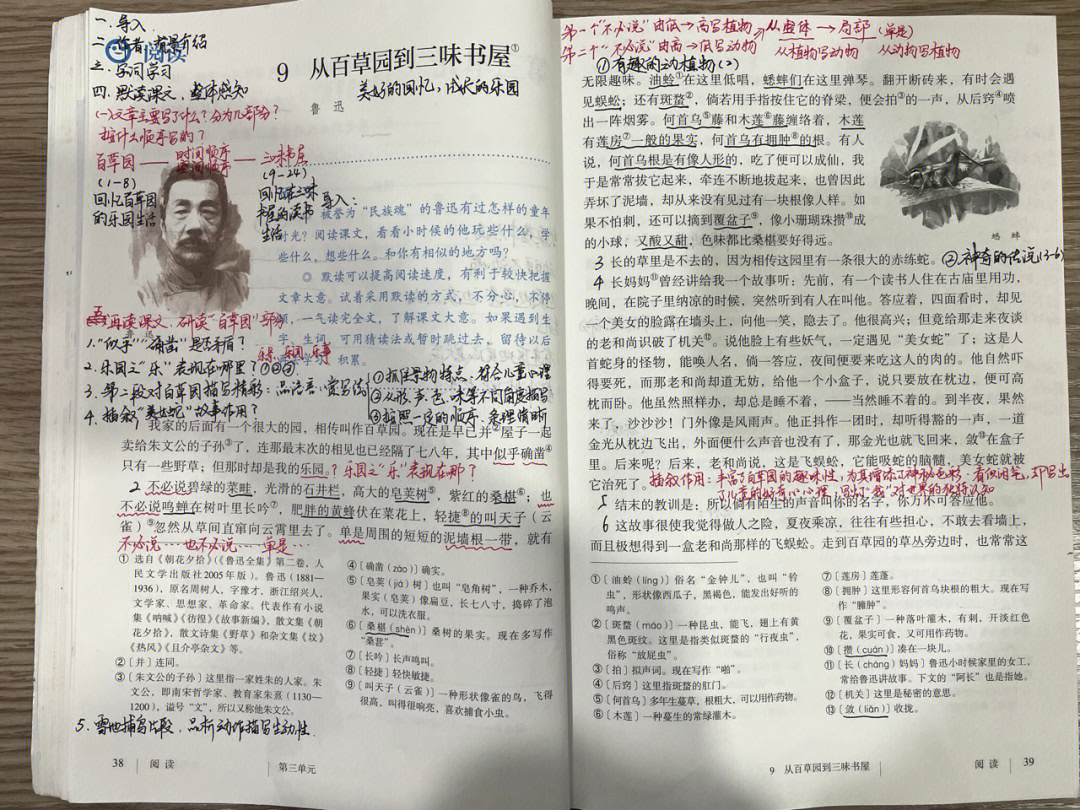 一. 导入
二. 作者, 背景介绍
阅读
三. 字词学习
9 从百草园到三味书屋①
四. 默读课文, 整体感知
美好的回忆, 成长的乐园
鲁迅
(一)文章主要写了什么? 分为几部分?
按什么顺序写的?
百草园 —— 时间顺序 —— 三味书屋
空间顺序
(1-8)
(9-24)
回忆百草园
的乐园生活
回忆在三味
书屋的读书
生活
导入:
被誉为“民族魂”的鲁迅有过怎样的童年
时光?阅读课文,看看小时候的他玩些什么,学
些什么,想些什么。和你有相似的地方吗?
◎ 默读可以提高阅读速度,有利于较快把握
文章大意。试着采用默读的方式,不分心,不停
顿,一气读完全文,了解课文大意。如果遇到生
字、生词,可用猜读法或暂时跳过去,留待以后
再学习、积累。
五. 再读课文, 研读“百草园”部分
鲁迅
1. “似乎”“确凿”是否矛盾?
2. 乐园之“乐”表现在哪里? ①②③
乐景、乐闻、乐事
3. 第二段对百草园描写精彩: 品语言·赏写法
①抓住景物特点, 符合儿童心理
②从形、声、色、味等不同角度描写
③按照一定的顺序, 条理清晰
4. 插叙“美女蛇”故事作用?
我家的后面有一个很大的园,相传叫作百草园。现在是早已并②屋子一起
卖给朱文公的子孙③了,连那最末次的相见也已经隔了七八年,其中似乎确凿④
只有一些野草;但那时却是我的乐园。
? 乐园之“乐”表现在哪?
2 不必说碧绿的菜畦,光滑的石井栏,高大的皂荚树⑤,紫红的桑椹⑥;也
不必说鸣蝉在树叶里长吟⑦,肥胖的黄蜂伏在菜花上,轻捷⑧的叫天子(云
雀)⑨忽然从草间直窜向云霄里去了。单是周围的短短的泥墙根一带,就有
不必说…也不必说…单是…
① 选自《朝花夕拾》(《鲁迅全集》第二卷,人
民文学出版社2005年版)。鲁迅(1881—
1936),原名周树人,字豫才,浙江绍兴人,
文学家、思想家、革命家。代表作有小说
集《呐喊》《彷徨》《故事新编》,散文集《朝
花夕拾》,散文诗集《野草》和杂文集《坟》
《热风》《且介亭杂文》等。
②〔并〕连同。
③〔朱文公的子孙〕这里指一家姓朱的人家。朱
文公,即南宋哲学家、教育家朱熹(1130—
1200),谥号“文”,所以又称他朱文公。
④〔确凿(záo)〕确实。
⑤〔皂荚(jiá)树〕也叫“皂角树”,一种乔木,
果实(皂荚)像扁豆,长七八寸,捣碎了泡
水,可以洗衣服。
⑥〔桑椹(shèn)〕桑树的果实。现在多写作
“桑葚”。
⑦〔长吟〕长声鸣叫。
⑧〔轻捷〕轻快敏捷。
⑨〔叫天子(云雀)〕一种形状像雀的鸟,飞得
很高,叫得很响亮,喜欢捕食小虫。
5. 雪地捕鸟片段, 品析动作描写生动性.
38 阅读
第三单元
第一个“不必说”由低→高写植物
从整体→局部(单是)
第二个“不必说”由高→低写动物
从植物写动物 从动物写植物
①有趣的动植物(2)
无限趣味。油蛉①在这里低唱,蟋蟀们在这里弹琴。翻开断砖来,有时会遇
见蜈蚣;还有斑蝥②,倘若用手指按住它的脊梁,便会拍③的一声,从后窍④喷
出一阵烟雾。何首乌⑤藤和木莲⑥藤缠络着,木莲
有莲房⑦一般的果实,何首乌有拥肿⑧的根。有人
说,何首乌根是有像人形的,吃了便可以成仙,我
于是常常拔它起来,牵连不断地拔起来,也曾因此
弄坏了泥墙,却从来没有见过有一块根像人样。如
果不怕刺,还可以摘到覆盆子⑨,像小珊瑚珠攒⑩成
的小球,又酸又甜,色味都比桑椹要好得远。
蟋蟀
3 长的草里是不去的,因为相传这园里有一条很大的赤练蛇。
②神奇的传说(3-6)
4 长妈妈⑪曾经讲给我一个故事听:先前,有一个读书人住在古庙里用功,
晚间,在院子里纳凉的时候,突然听到有人在叫他。答应着,四面看时,却见
一个美女的脸露在墙头上,向他一笑,隐去了。他很高兴;但竟给那走来夜谈
的老和尚识破了机关⑫。说他脸上有些妖气,一定遇见“美女蛇”了;这是人
首蛇身的怪物,能唤人名,倘一答应,夜间便要来吃这人的肉的。他自然吓
得要死,而那老和尚却道无妨,给他一个小盒子,说只要放在枕边,便可高
枕而卧。他虽然照样办,却总是睡不着,——当然睡不着的。到半夜,果然
来了,沙沙沙!门外像是风雨声。他正抖作一团时,却听得豁的一声,一道
金光从枕边飞出,外面便什么声音也没有了,那金光也就飞回来,敛⑬在盒子
里。后来呢?后来,老和尚说,这是飞蜈蚣,它能吸蛇的脑髓,美女蛇就被
它治死了。
插叙作用: 丰富了百草园的趣味性, 为其增添了神秘色彩,
5 结末的教训是:所以倘有陌生的声音叫你的名字,你万不可答应他。
6 这故事很使我觉得做人之险,夏夜乘凉,往往有些担心,不敢去看墙上,
而且极想得到一盒老和尚那样的飞蜈蚣。走到百草园的草丛旁边时,也常常这
①〔油蛉(líng)〕俗名“金钟儿”,也叫“铃
虫”,形状像西瓜子,黑褐色,能发出好听的
鸣声。
②〔斑蝥(máo)〕一种昆虫,能飞,翅上有黄
黑色斑纹。这里是指类似斑蝥的“行夜虫”,
俗称“放屁虫”。
③〔拍〕拟声词。现在写作“啪”。
④〔后窍〕这里指斑蝥的肛门。
⑤〔何首乌〕多年生蔓草,根粗大,可以用作药物。
⑥〔木莲〕一种蔓生的常绿灌木。
⑦〔莲房〕莲蓬。
⑧〔拥肿〕这里形容何首乌块根的粗大。现在写
作“臃肿”。
⑨〔覆盆子〕一种落叶灌木,有刺,开淡红色
花,果实可食,又可用作药物。
⑩〔攒(cuán)〕凑在一块儿。
⑪〔长(cháng)妈妈〕鲁迅小时候家里的女工,
常给鲁迅讲故事。下文的“阿长”也是指她。
⑫〔机关〕这里是秘密的意思。
⑬〔敛(liǎn)〕收拢。
9 从百草园到三味书屋
阅读 39